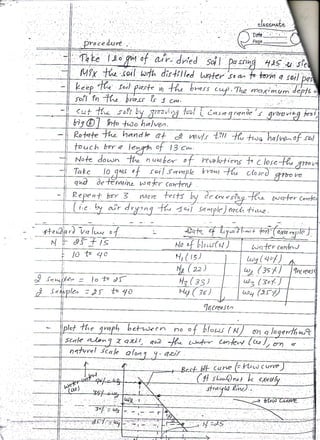 classmate
Date
Page
procedure.
- Take 120 gm of air-dried soil passing 425 u sie
Mix the soil with distilled water so as to form a soil pas
- keep the soil paste in the brass cup. The maximum depth o
soil in the brass is 1 cm.
- cut the soil by grooving tool [casagrande's grooving tool,
big into two halves.
- Rotate the handle at 2 rev/s till the two halves of soil
touch for a length of 13 cm.
- Note down the number of revolutions to close the groov
- Take 10 gms of soil sample from the closed groove
and determine water content
- Repeat for 3 more tests by decreasing the water conte
(i.e by air drying the soil sample) each time.
- standard value of
N = 25 ± 15
= 10 to 40
2 samples = 10 to 25
2 samples = 25 to 40
Data of liquid limit test (example)
No of blows (N) Water content
N1 (15) w1 (40%)
N2 (22) w2 (35%)
N3 (33) w3 (30%)
N4 (36) w4 (25%)
Increases
Increases
- plot the graph between no of blows (N) on a logarithmic
scale along x axis, and the water content (w), on a
natural scale along y-axis
water content
(w)
Best fit curve (= flow curve)
(It should be exactly
straight line)
flow curve
N = 25